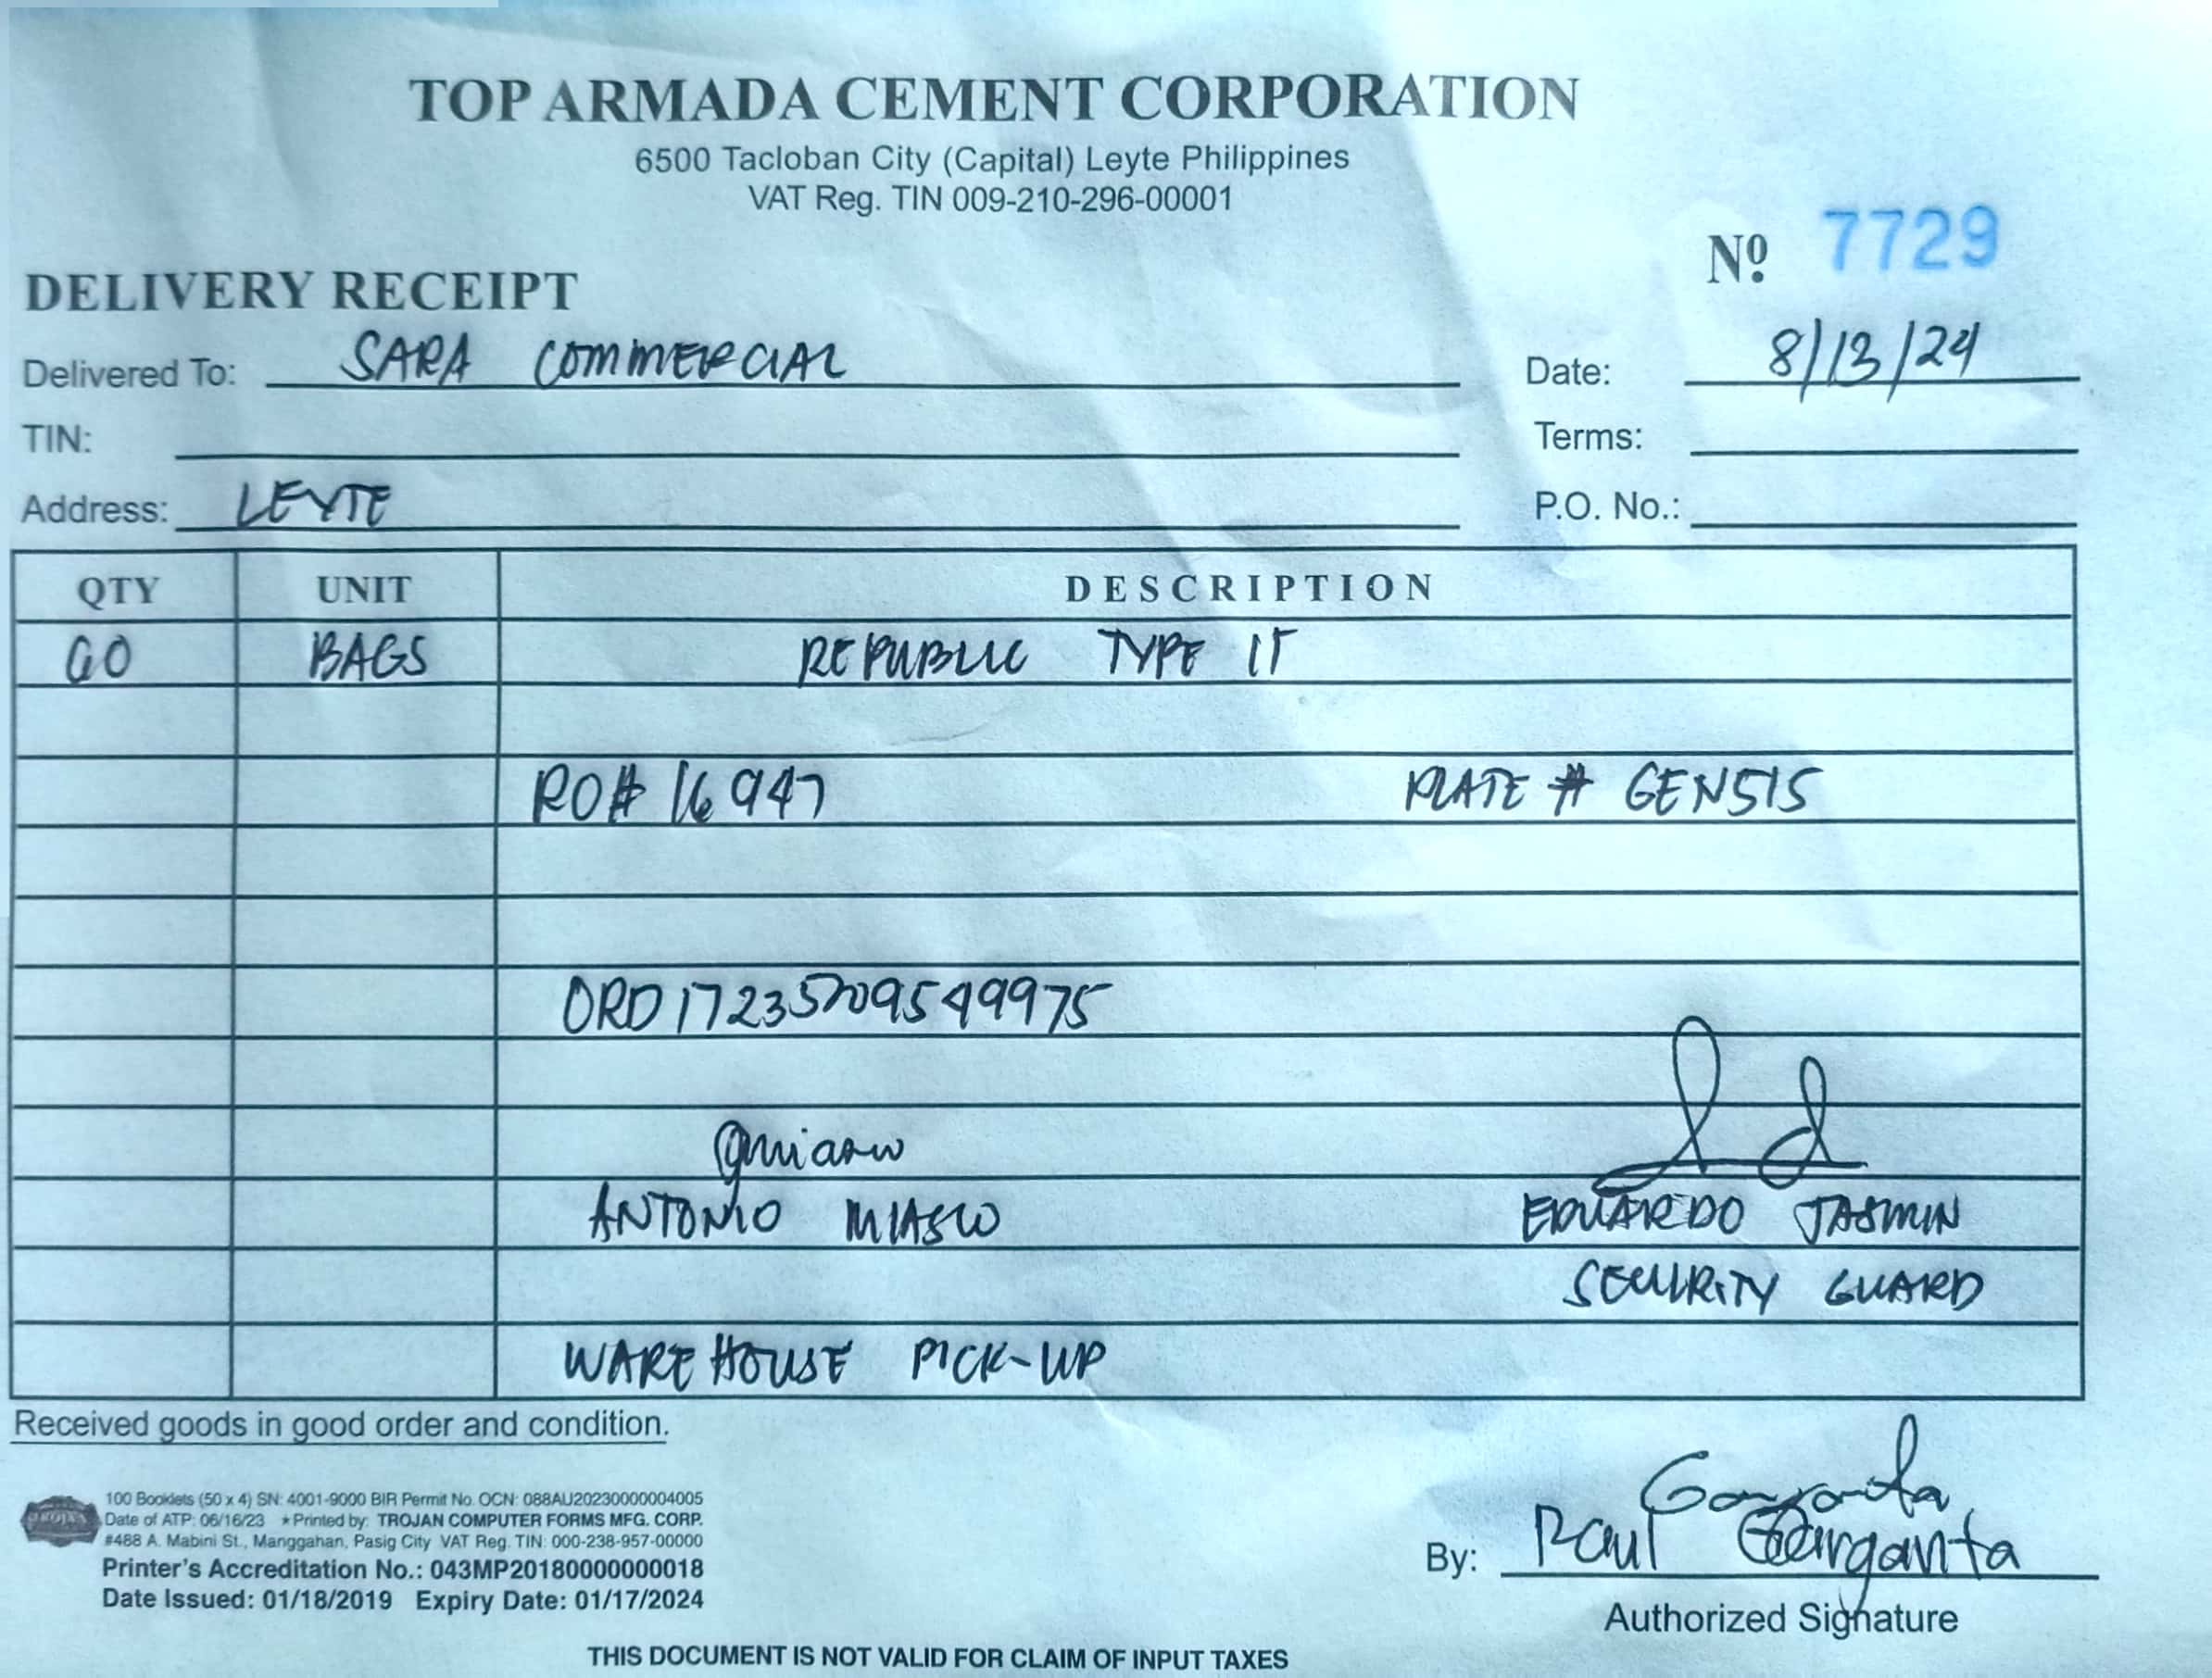 TOP ARMADA CEMENT CORPORATION
6500 Tacloban City (Capital) Leyte Philippines
VAT Reg. TIN 009-210-296-00001
Nº 7729
DELIVERY RECEIPT
Delivered To: SARA COMMERCIAL
Date: 8/13/24
TIN:
Terms:
Address: LEYTE
P.O. No.:
QTY UNIT DESCRIPTION
BAGS REPUBLIC TYPE 1T
RO# 16947 PLATE # GEN515
ORD1723570954 9975
ANTONIO MIASCO EDUARDO JASMIN
SECURITY GUARD
WAREHOUSE PICK-UP
Received goods in good order and condition.
100 Booklets (50 x 4) SN: 4001-9000 BIR Permit No. OCN: 088AU20230000004005
Date of ATP: 06/16/23 ★Printed by: TROJAN COMPUTER FORMS MFG. CORP.
#488 A. Mabini St., Manggahan, Pasig City VAT Reg. TIN: 000-238-957-00000
Printer's Accreditation No.: 043MP20180000000018
Date Issued: 01/18/2019 Expiry Date: 01/17/2024
By: Raul Garganta
Authorized Signature
THIS DOCUMENT IS NOT VALID FOR CLAIM OF INPUT TAXES